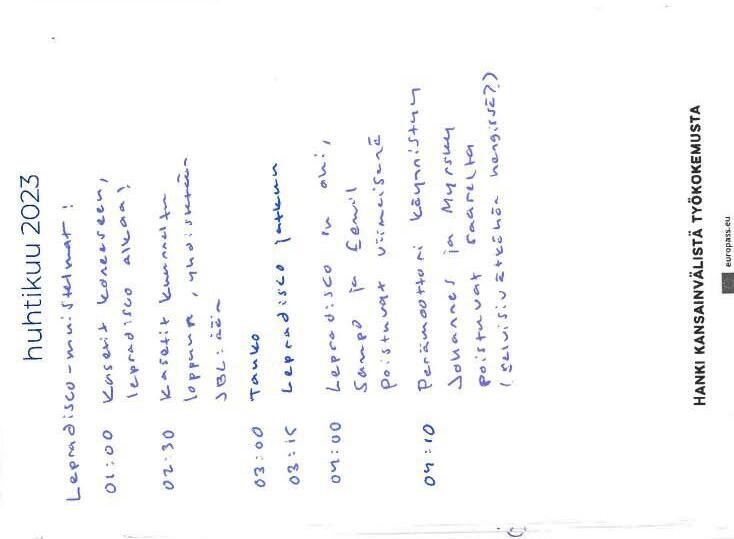 huhtikuu 2023
Lepradisco-muistelmat:
01:00 Kasetit koneeseen,
lepradisco alkaa!
02:30 Kasetit kuunneltu
loppuun, yhdistetään
JBL:ään
03:00 Tauko
03:15 Lepradisco jatkuu
04:00 Lepradisco on ohi,
Sampo ja Eemil
poistuvat viimeisenä
04:10 Perämoottori käynnistyy
Johannes ja Myrsky
poistuvat saarelta
(selvisivätköhän hengissä??)
HANKI KANSAINVÄLISTÄ TYÖKOKEMUSTA
europass.eu